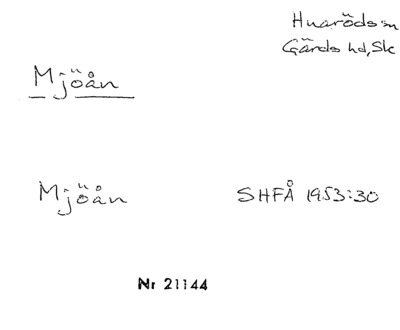 Huaröds sn
Gärds hd, Sk
Mjöån
Mjöån SHFÅ 1953:30
Nr 21144